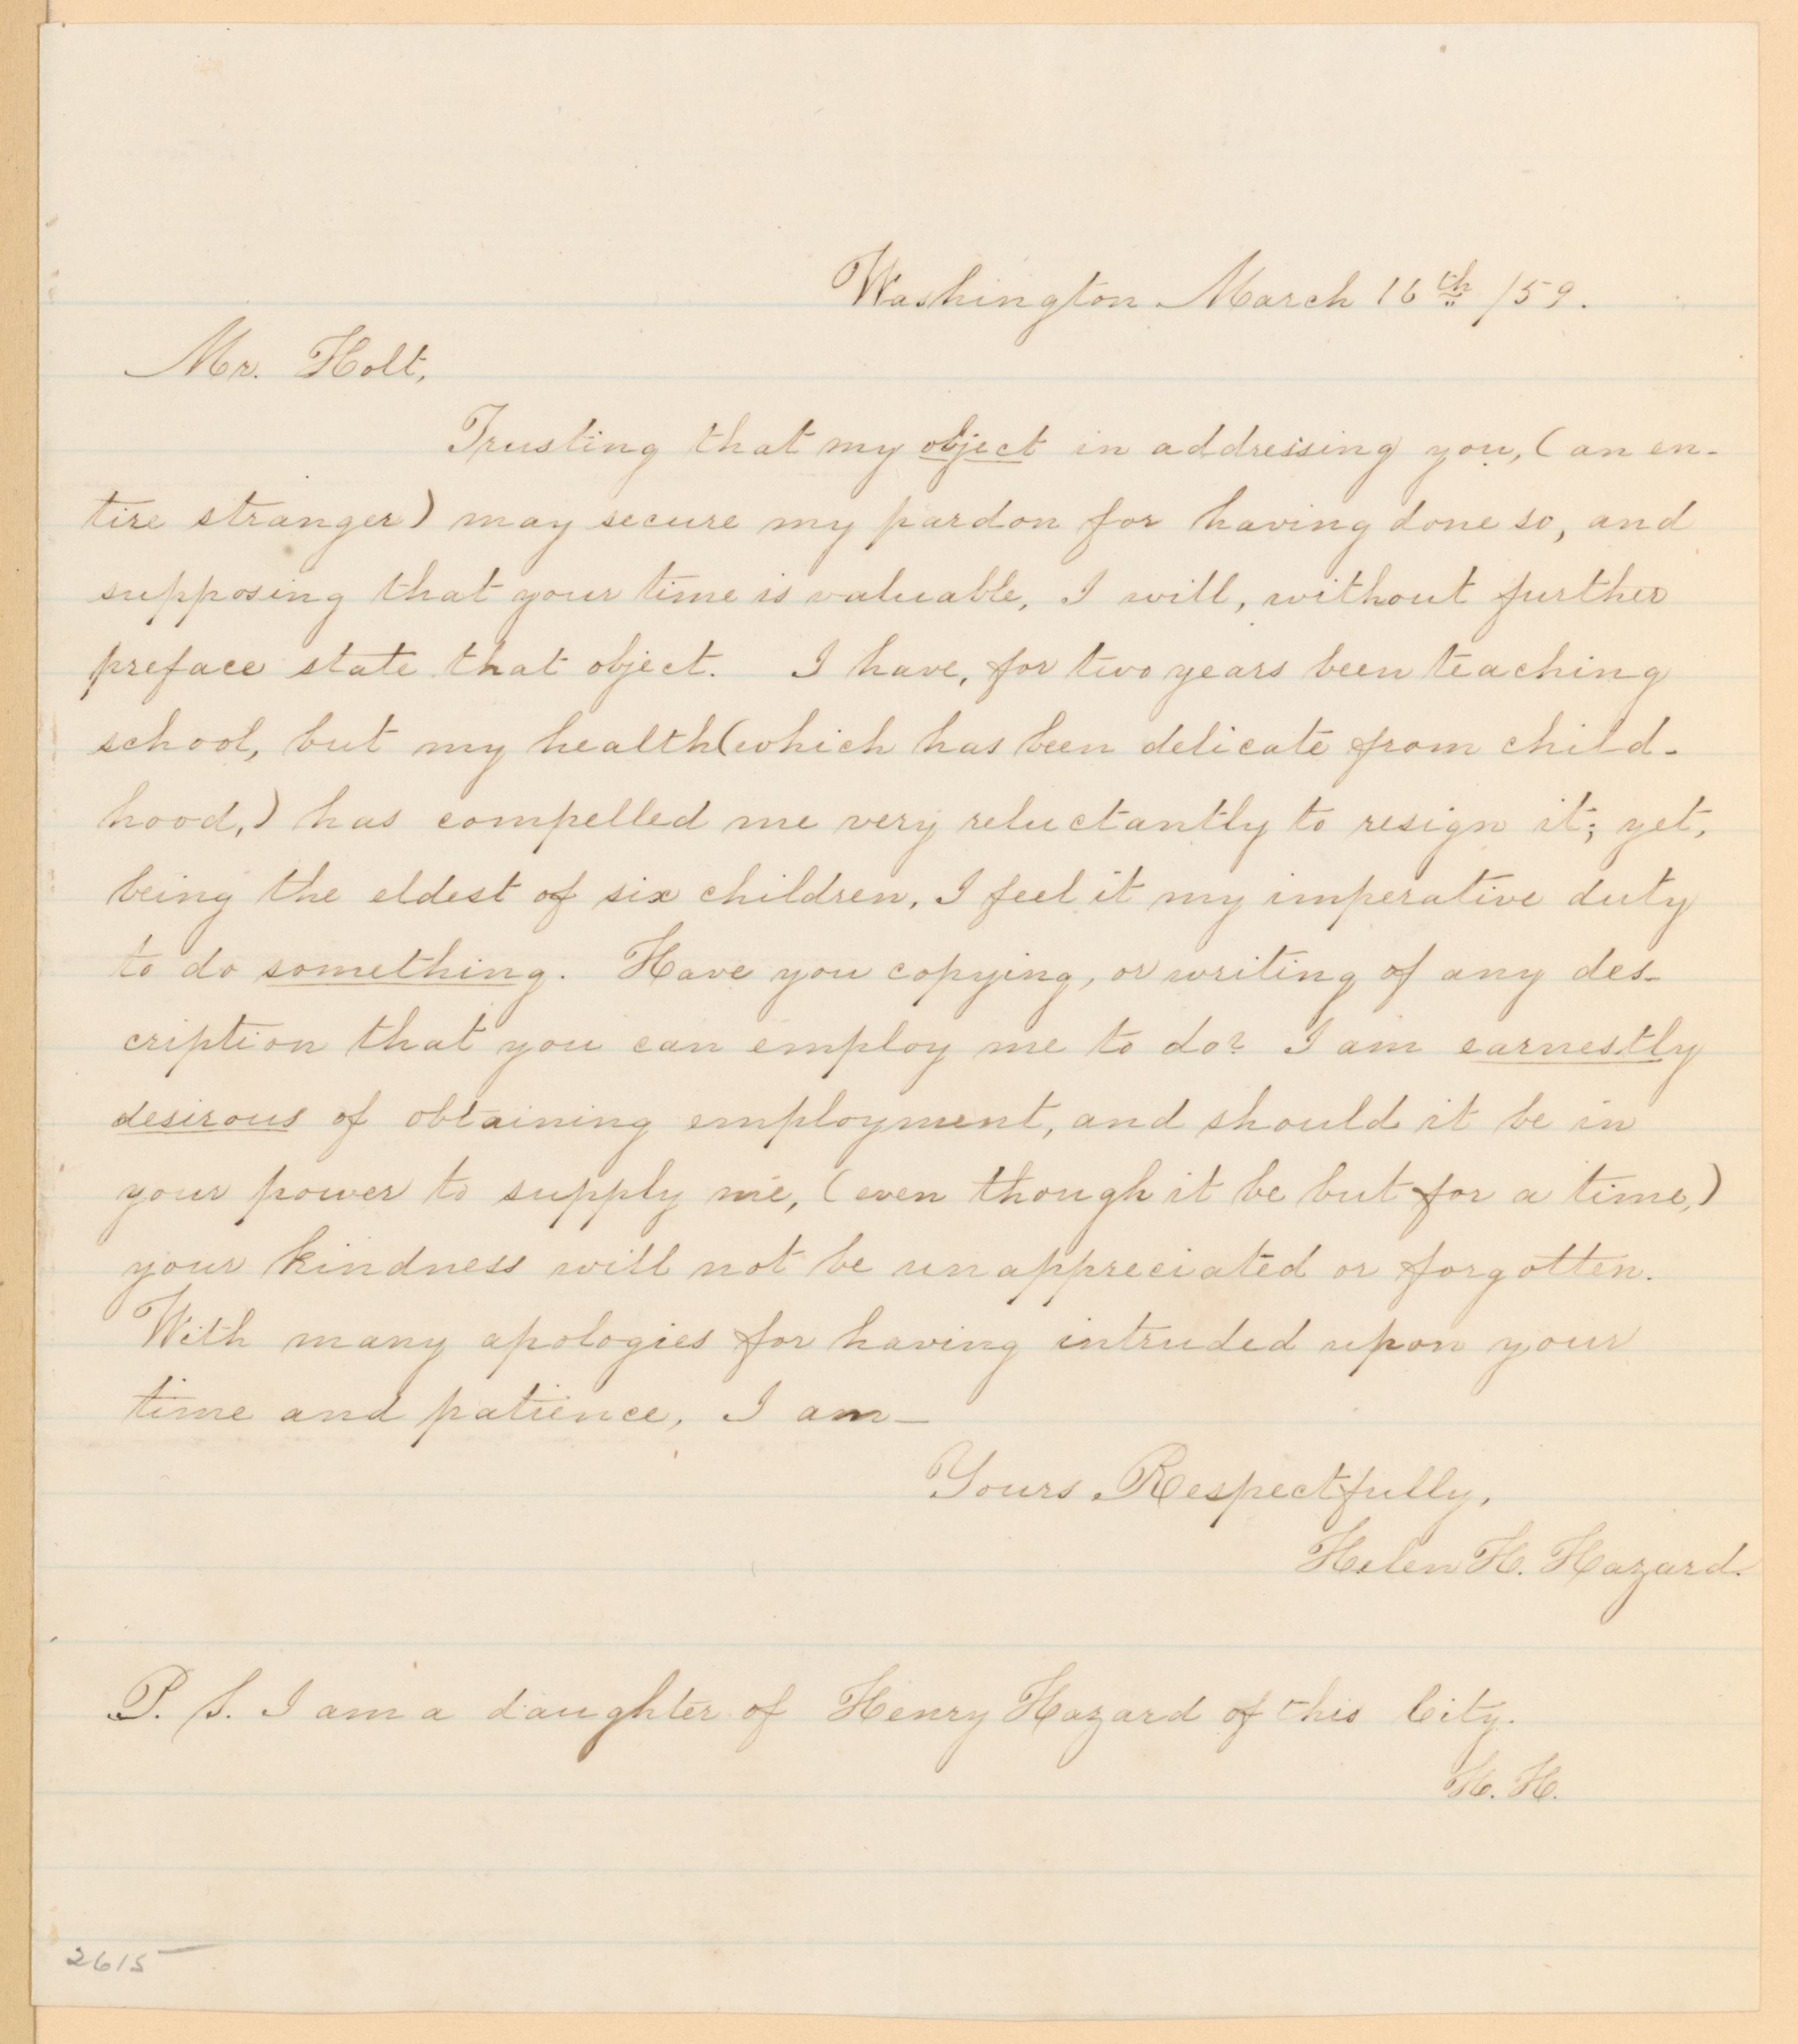 Washington March 16th /59.
Mr. Holt,
Trusting that my object in addressing you, (an en-
tire stranger) may secure my pardon for having done so, and
supposing that your time is valuable, I will, without further
preface state that object. I have, for two years been teaching
school, but my health (which has been delicate from child-
hood,) has compelled me very reluctantly to resign it; yet,
being the eldest of six children, I feel it my imperative duty
to do something. Have you copying, or writing of any des-
cription that you can employ me to do? I am earnestly
desirous of obtaining employment, and should it be in
your power to supply me, (even though it be but for a time,)
your kindness will not be unappreciated or forgotten.
With many apologies for having intruded upon your
time and patience, I am—
Yours Respectfully,
Helen H. Hazard.
P. S. I am a daughter of Henry Hazard of this City.
H. H.
2615